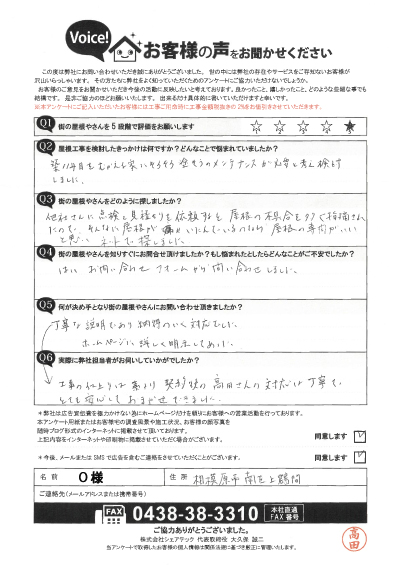 Voice!
お客様の声をお聞かせください
この度は弊社にお問い合わせいただき誠にありがとうございました。世の中には弊社の存在やサービスをご存知ないお客様が
沢山いらっしゃいます。その方たちに弊社をよく知っていただくためのアンケートにご協力いただけないでしょうか。
お客様のご意見をお聞かせいただき今後の活動に反映したいと考えております。良かったこと、嬉しかったこと、どのような些細な事でも
結構です。是非ご協力のほどお願いいたします。出来るだけ具体的に書いていただけますと幸いです。
※本アンケートにご記入いただいたお客様には工事ご依頼時に工事金額税抜きの2%をお値引きさせていただきます。
Q1 街の屋根やさんを5段階で評価をお願いします ☆ ☆ ☆ ☆ ★
Q2 屋根工事を検討したきっかけは何ですか?どんなことで悩まれていましたか?
築11年目をむかえ家にそろそろ塗そうのメンテナンスが必要と考え検討
しました。
Q3 街の屋根やさんをどのように探しましたか?
他社さんに点検と見積もりを依頼すると屋根の不具合を多々指摘され
たので、そんなに屋根がいたんでいるのなら屋根の専門がいい
と思い ネットで探しました
Q4 街の屋根やさんを知りすぐにお問合せ頂けましたか?もし悩まれたとしたらどんなことがご不安でしたか?
はい お問い合わせフォームから問い合わせしました。
Q5 何が決め手となり街の屋根やさんにお問い合わせ頂きましたか?
丁寧な説明であり納得のいく対応でした。
ホームページに詳しく明示してあった。
Q6 実際に弊社担当者がお伺いしていかがでしたか?
工事の仕上りは勿り 契約後の高田さんの対応は丁寧で、
とても安心しておまかせできました。
＊弊社は広告宣伝費を極力かけない為にホームページだけを頼りにお客様への営業活動を行っております。
本アンケート用紙またはお客様宅の調査風景や施工状況、お客様の顔写真を
随時ブログ形式のインターネットに掲載させて頂いております。
上記内容をインターネットや印刷物に掲載させていただく場合がございます。 同意します
＊今後、メールまたはSMSで広告を含むご連絡をさせていただくことがございます。 同意します
名前 O様 住所 相模原市南区上鶴間
ご連絡先(メールアドレスまたは携帯番号)
FAX 0438-38-3310 本社直通 FAX番号
ご協力ありがとうございました。
株式会社シェアテック 代表取締役 大久保 誠二
当アンケートで取得したお客様の個人情報は関係法規に基づき厳正に管理いたします。
高田